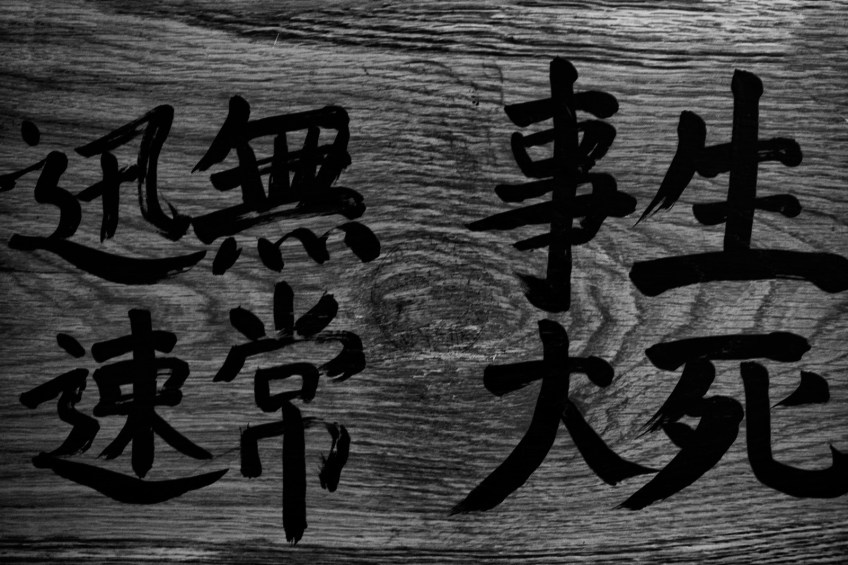 生死
事大
無常
迅速